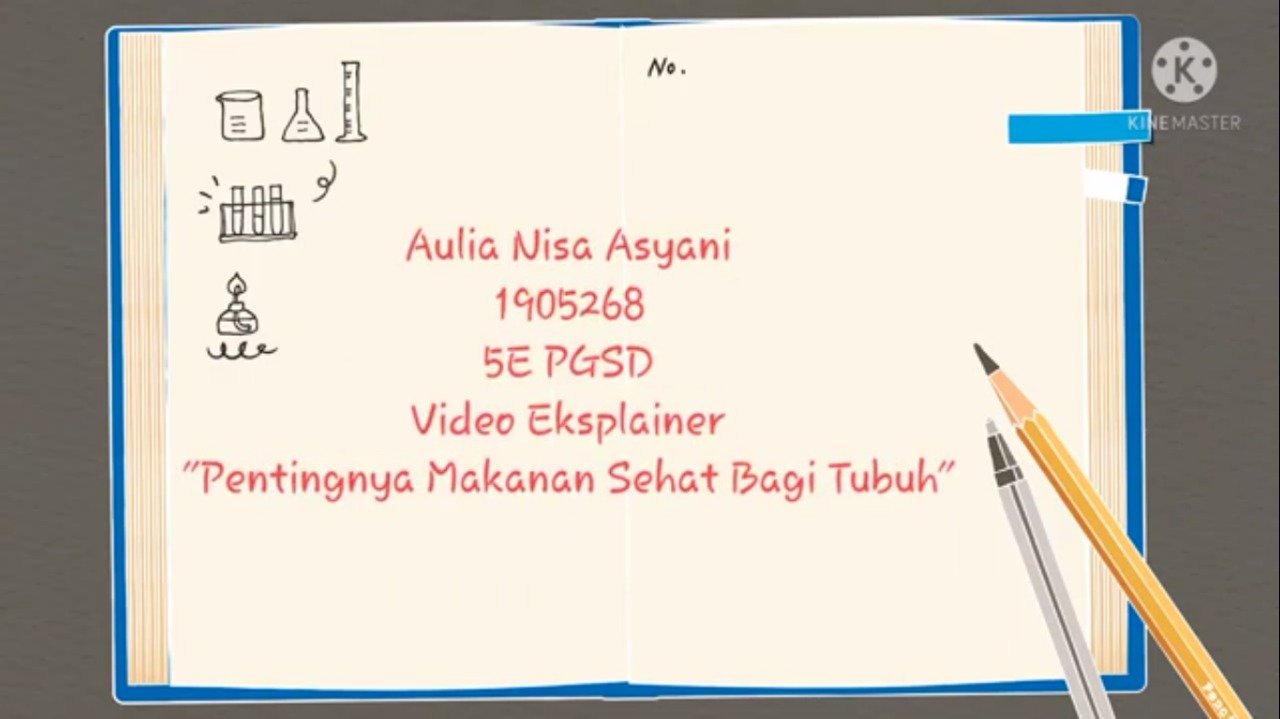 No.
K
KINEMASTER
Aulia Nisa Asyani
1905268
5E PGSD
Video Eksplainer
"Pentingnya Makanan Sehat Bagi Tubuh"